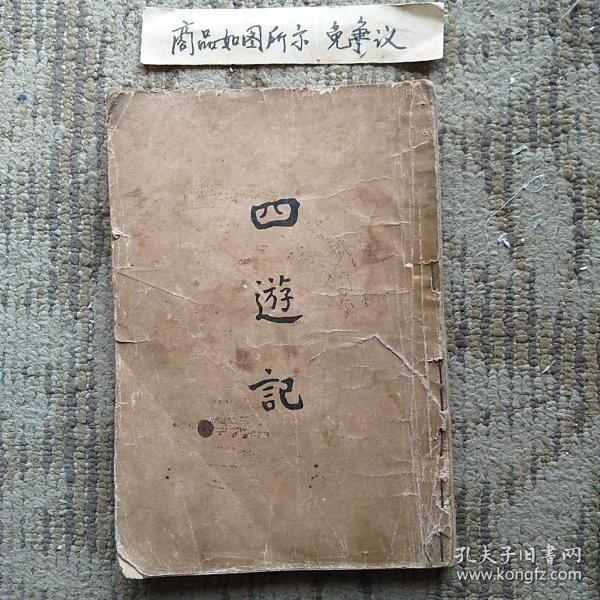 商品如图所示 免争议
四遊記
孔夫子旧書网
www.kongfz.com